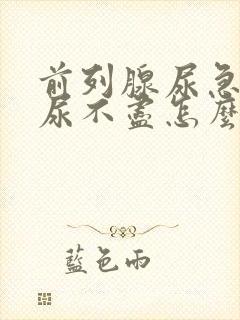 前列腺尿急
尿不盡怎麼
藍色雨